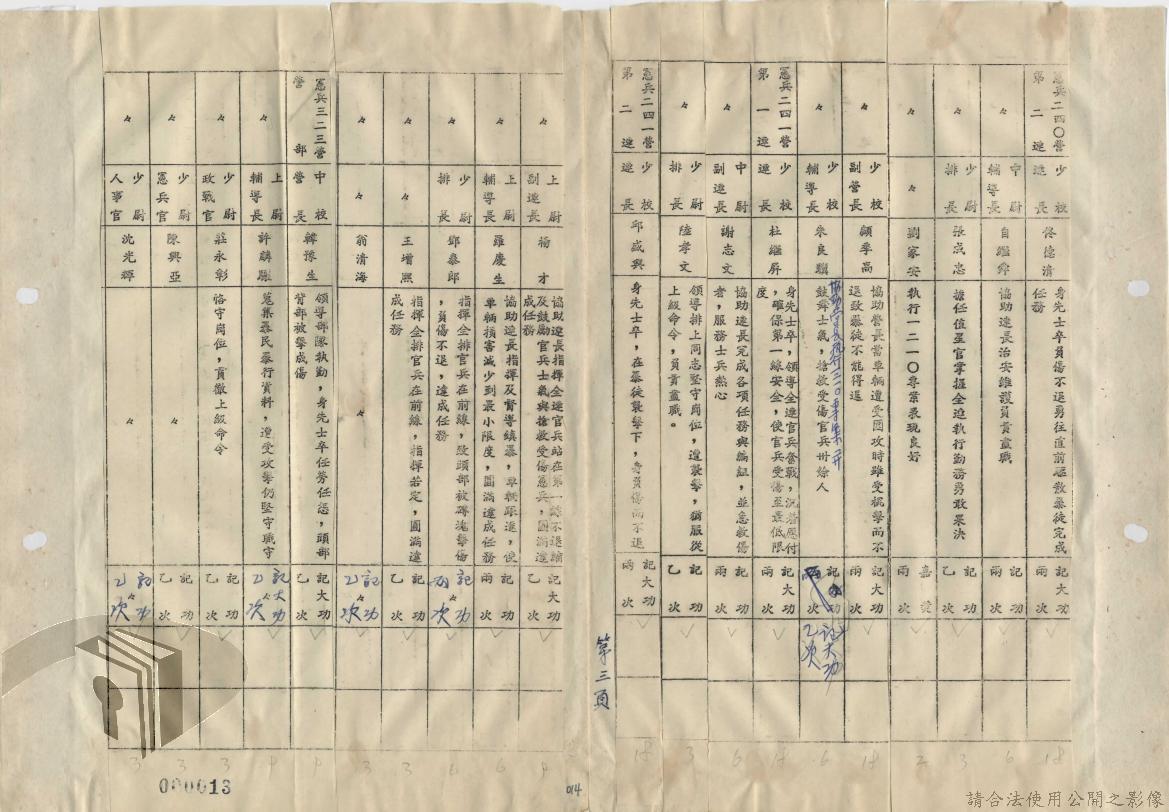 憲兵二四〇營第二連 少校連長 佟德清 身先士卒負傷不退勇往直前驅散暴徒完成任務 記大功兩次 18
〃 中尉輔導長 自繼舜 協助連長治安維護員責盡職 記功兩次 6
〃 少尉排長 張成忠 擔任值星官掌握全連執行勤務勇敢果決 記功乙次 3
〃 〃 劉家安 執行一二一〇專案表現良好 嘉獎兩次 2
〃 少校副營長 顧季高 協助營長當車輛遭受圍攻時雖受襲擊而不退致暴徒不能得逞 記大功兩次 18
〃 少校輔導長 朱良驥 鼓舞士氣,搶救受傷官兵卅餘人 記功兩次 記大功乙次 6
憲兵二四一營第一連 少校連長 杜繼屏 身先士卒,領導全連官兵奮戰,沉着應付,確保第一線安全,使官兵受傷至最低限度 記大功兩次 18
〃 中尉副連長 謝志文 協助連長完成各項任務與編組,並急救傷者,服務士兵熱心 記功兩次 6
〃 少尉排長 陸孝文 領導排上同志堅守崗位,遭襲擊,猶服從上級命令,負責盡職。 記功乙次 3
憲兵二四一營第二連 少校連長 邱盛興 身先士卒,在暴徒襲擊下,身負傷而不退 記大功兩次 18
第三頁
〃 上尉副連長 楊才 協助連長指揮全連官兵站在第一線不退縮及鼓勵官兵士氣與搶救受傷憲兵,圓滿達成任務 記大功乙次 9
〃 上尉輔導長 羅慶生 協助連長指揮及督導鎮暴,車輛採退,使車輛損害減少到最小限度,圓滿達成任務 記功兩次 6
〃 少尉排長 鄧泰郎 指揮全排官兵在前線,致頭部被磚塊擊傷,負傷不退,達成任務 記功兩次 6
〃 〃 王增熙 指揮全排官兵在前線,指揮若定,圓滿達成任務 記功乙次 3
〃 〃 翁清海 〃 記功乙次 3
憲兵三二三營營部 中校營長 韓豫生 領導部隊執勤,身先士卒任勞任怨,頭部背部被擊成傷 記大功乙次 9
〃 上尉輔導長 許麟 蒐集暴民暴行資料,遭受攻擊仍堅守職守 記大功乙次 9
〃 少尉政戰官 莊永彰 恪守崗位,貫徹上級命令 記功乙次 3
〃 少尉憲兵官 陳興亞 〃 記功乙次 3
〃 少尉人事官 沈光輝 〃 記功乙次 3
000013
014
請合法使用公開之影像